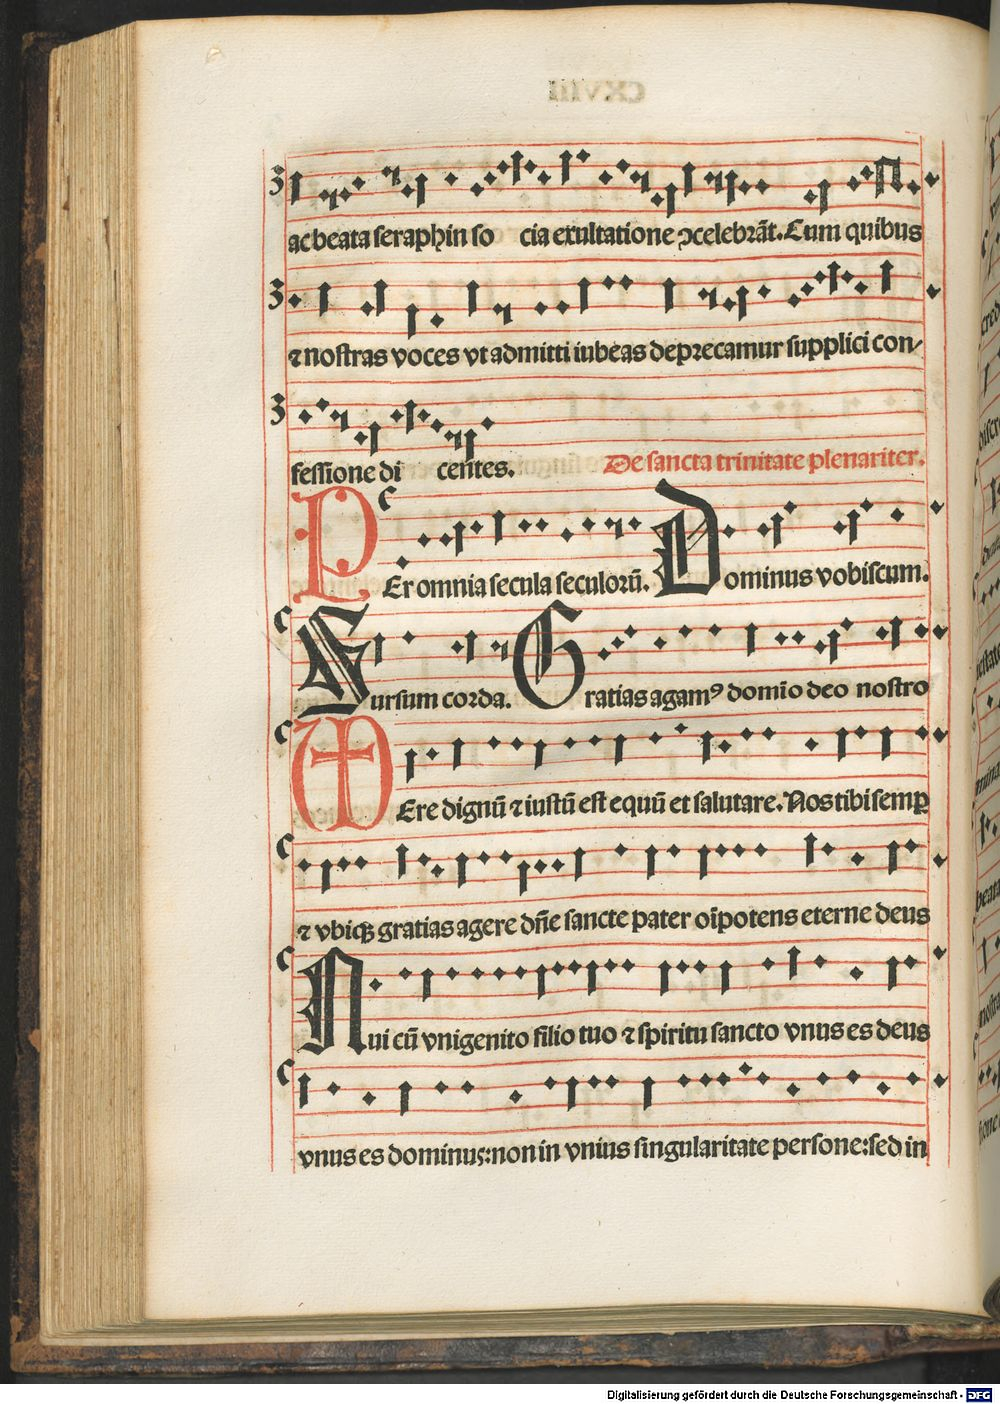 ac beata seraphin so cia exultatione ꝯcelebrãt. Cum quibus
⁊ nostras voces vt admitti iubeas deprecamur supplici con/
fessione di centes. De sancta trinitate plenariter.
PEr omnia secula seculorũ. Dominus vobiscum.
Sursum corda. Gratias agamꝰ domio deo nostro
VEre dignũ ⁊ iustũ est equũ et salutare. Nos tibi semꝑ
⁊ vbiqꝫ gratias agere dñe sancte pater oĩpotens eterne deus
Qui cũ vnigenito filio tuo ⁊ spiritu sancto vnus es deus
vnus es dominus: non in vnius singularitate persone: sed in
Digitalisierung gefördert durch die Deutsche Forschungsgemeinschaft - DFG